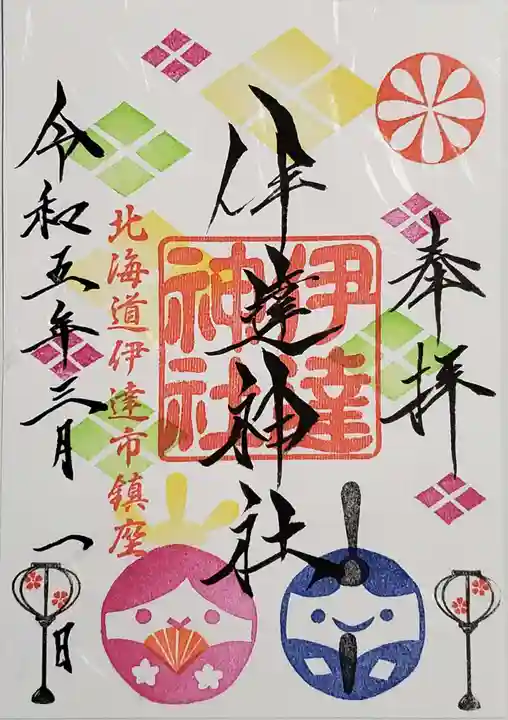 奉拝
伊達神社
伊達
神社
北海道伊達市鎮座
令和五年三月一日